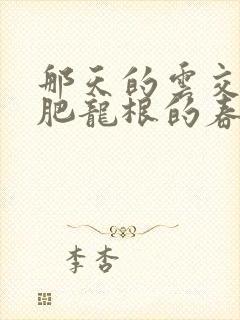 那天的雲交
肥龍根的春
李杏